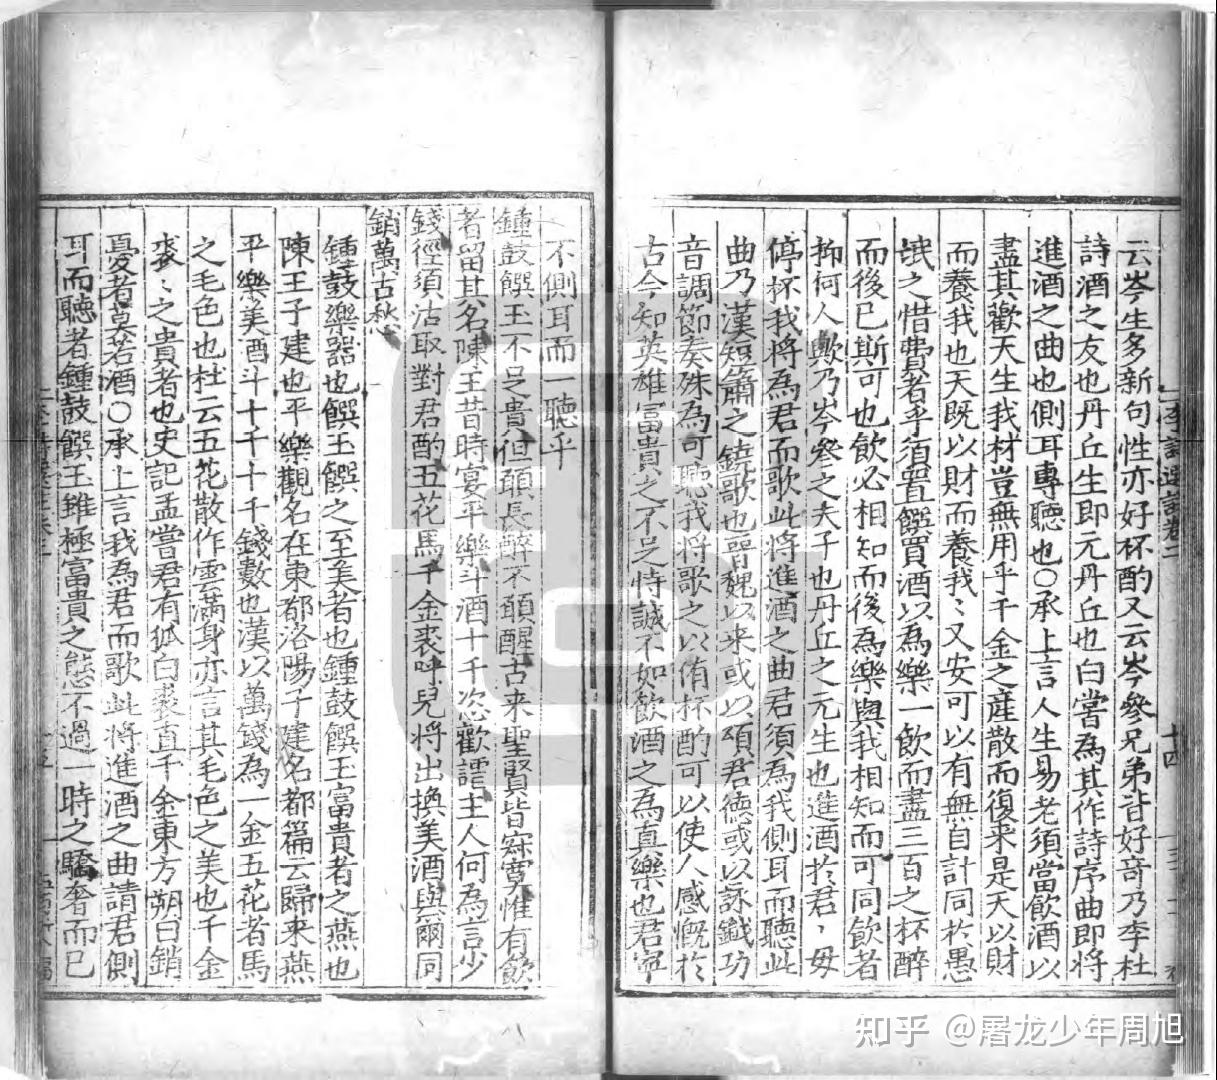 云岑生多新句性亦好杯酌又云岑參兄弟皆好奇乃李杜
詩酒之友也丹丘生即元丹丘也白嘗為其作詩序曲即將
進酒之曲也側耳專聽也〇承上言人生易老須當飲酒以
盡其歡天生我材豈無用乎千金之産散而復来是天以財
而養我也天既以財而養我〻又安可以有無自計同於愚
蚩之惜費者乎須置饌買酒以為樂一飲而盡三百之杯醉
而後已斯可也飲必相知而後為樂與我相知而可同飲者
抑何人歟乃岑參之夫子也丹丘之元生也進酒於君毋
停杯我將為君而歌此將進酒之曲君須為我側耳而聽此
曲乃漢短簫之鐃歌也晉魏以来或以頌君德或以詠戰功
音調節奏殊為可聽我將歌之以侑杯酌可以使人感慨於
古今知英雄富貴之不足恃誠不如飲酒之為真樂也君寧
李詩選註卷二
十四
不側耳而一聽乎
鍾鼓饌玉不足貴但願長醉不願醒古来聖賢皆寂寞惟有飲
者留其名陳王昔時宴平樂斗酒十千恣歡謔主人何為言少
錢徑須沽取對君酌五花馬千金裘呼兒將出換美酒與爾同
銷萬古愁
鍾鼓樂器也饌玉饌之至美者也鍾鼓饌玉富貴者之燕也
陳王子建也平樂觀名在東都洛陽子建名都篇云歸来燕
平樂美酒斗十千十千錢數也漢以萬錢為一金五花者馬
之毛色也杜云五花散作雲滿身亦言其毛色之美也千金
裘〻之貴者也史記孟嘗君有狐白裘直千金東方朔曰銷
憂者莫若酒〇承上言我為君而歌此將進酒之曲請君側
耳而聽者鍾鼓饌玉雖極富貴之態不過一時之驕奢而已
知乎 @屠龙少年周旭